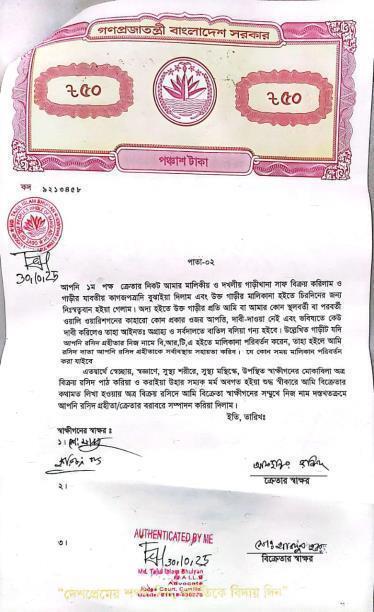 গণপ্রজাতন্ত্রী বাংলাদেশ সরকার
৳৫০ ৳৫০
পঞ্চাশ টাকা
কদ ৯২১৩৪৫৮
30/01/25
পাতা-০২
আপনি ১ম পক্ষ ক্রেতার নিকট আমার মালিকীয় ও দখলীয় গাড়ীখানা সাফ বিক্রয় করিলাম ও
গাড়ীর যাবতীয় কাগজপত্রাদি বুঝাইয়া দিলাম এবং উক্ত গাড়ীর মালিকানা হইতে চিরদিনের জন্য
নিঃস্বত্ববান হইয়া গেলাম। অদ্য হইতে উক্ত গাড়ীর প্রতি আমি বা আমার কোন স্থলবর্তী বা পরবর্তী
ওয়ালি ওয়ারিশগনের কাহারো কোন প্রকার ওজর আপত্তি, দাবী-দাওয়া নেই এবং ভবিষ্যতে কেউ
দাবী করিলেও তাহা আইনতঃ অগ্রাহ্য ও সর্বদালতে বাতিল বলিয়া গন্য হইবে। উল্লেখিত গাড়ীটি যদি
আপনি রসিদ গ্রহীতার নিজ নামে বি,আর,টি,এ হইতে মালিকানা পরিবর্তন করেন, তাহা হইলে আমি
রসিদ দাতা আপনি রসিদ গ্রহীতাকে সর্বাবস্থায় সহায়তা করিব। যে কোন সময় মালিকানা পরিবর্তন
করা যাইবে
এতদ্বার্থে স্বেচ্ছায়, স্বজ্ঞানে, সুস্থ্য শরীরে, সুস্থ্য মস্তিষ্কে, উপস্থিত স্বাক্ষীগনের মোকাবিলা অত্র
বিক্রয় রসিদ পাঠ করিয়া ও করাইয়া উহার সম্যক মর্ম অবগত হইয়া শুদ্ধ স্বীকারে আমি বিক্রেতার
কথামত লিখা হওয়ায় অত্র বিক্রয় রসিদে আমি বিক্রেতা স্বাক্ষীগনের সম্মুখে নিজ নাম দস্তখতক্রমে
আপনি রসিদ গ্রহীতা/ক্রেতার বরাবরে সম্পাদন করিয়া দিলাম।
ইতি, তারিখঃ
স্বাক্ষীগনের স্বাক্ষর ঃ
১।
ক্রেতার স্বাক্ষর
২।
৩।
AUTHENTICATED BY ME
30/01/25
Md. Tajul Islam Bhuiyan
Advocate
Judge Court, Cumilla
বিক্রেতার স্বাক্ষর
"দেশপ্রেমের শপথ নিন বিদায় দিন"